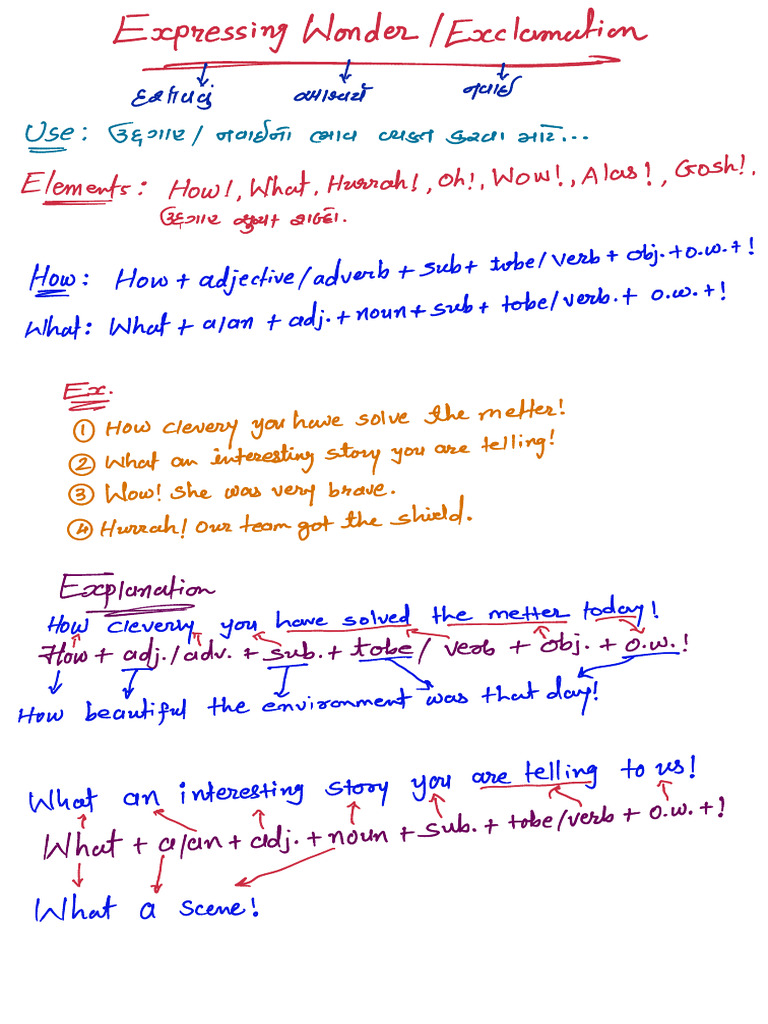 Expressing Wonder/Exclamation
દર્શાવવું આશ્ચર્ય નવાઈ
Use: ઉદ્દગાર / નવાઈનો ભાવ વ્યક્ત કરવા માટે...
Elements: How!, What, Hurrah!, Oh!, Wow!, Alas!, Gosh!.
ઉદ્દગાર જન્ય શબ્દો.
How: How + adjective/adverb + sub+ tobe/verb + obj.+o.w.+!
What: What + a/an + adj.+noun+sub+ tobe/verb.+ o.w.+!
Ex.
① How clevery you have solve the metter!
② What an interesting story you are telling!
③ Wow! She was very brave.
④ Hurrah! Our team got the shield.
Explanation
How cleverry you have solved the metter today!
How + adj./adv. + sub. + tobe/ verb + obj. + o.w.!
How beautiful the environment was that day!
What an interesting story you are telling to us!
What + a/an + adj. + noun + sub. + tobe/verb + o.w.+!
What a scene!